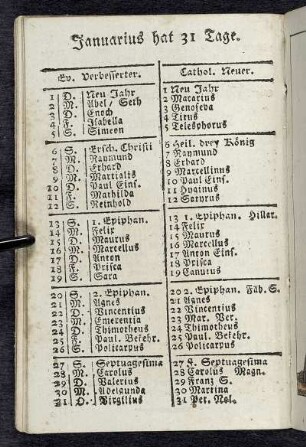 Januarius hat 31 Tage.
Ev. Verbesserter.
1 D. Neu Jahr
2 M. Abel/ Seth
3 D. Enoch
4 F. Isabella
5 S. Simeon
6 S. Ersch. Christi
7 M. Raymund
8 D. Erhard
9 M. Martialis
10 D. Paul Eins.
11 F. Mathilda
12 S. Reinhold
13 S. 1. Epiphan.
14 M. Felix
15 D. Maurus
16 M. Marcellus
17 D. Anton
18 F. Prisca
19 S. Sara
20 S. 2. Epiphan.
21 M. Agnes
22 D. Vincentius
23 M. Emerentia
24 D. Thimotheus
25 F. Paul. Bekehr.
26 S. Policarpus
27 S. Septuagesima
28 M. Carolus
29 D. Valerius
30 M. Adelgunda
31 D. Virgilius
Cathol. Neuer.
1 Neu Jahr
2 Macarius
3 Genofeva
4 Titus
5 Telesphorus
6 Heil. drey König
7 Raymund
8 Erhard
9 Marcellinus
10 Paul Eins.
11 Hyginus
12 Satyrus
13 1. Epiphan. Hillar.
14 Felix
15 Maurus
16 Marcellus
17 Anton Eins.
18 Prisca
19 Canutus
20 2. Epiphan. Fab. S.
21 Agnes
22 Vincentius
23 Mar. Ver.
24 Thimotheus
25 Paul. Bekehr.
26 Policarpus
27 Septuagesima
28 Carolus Magn.
29 Franz S.
30 Martina
31 Pet. Nol.